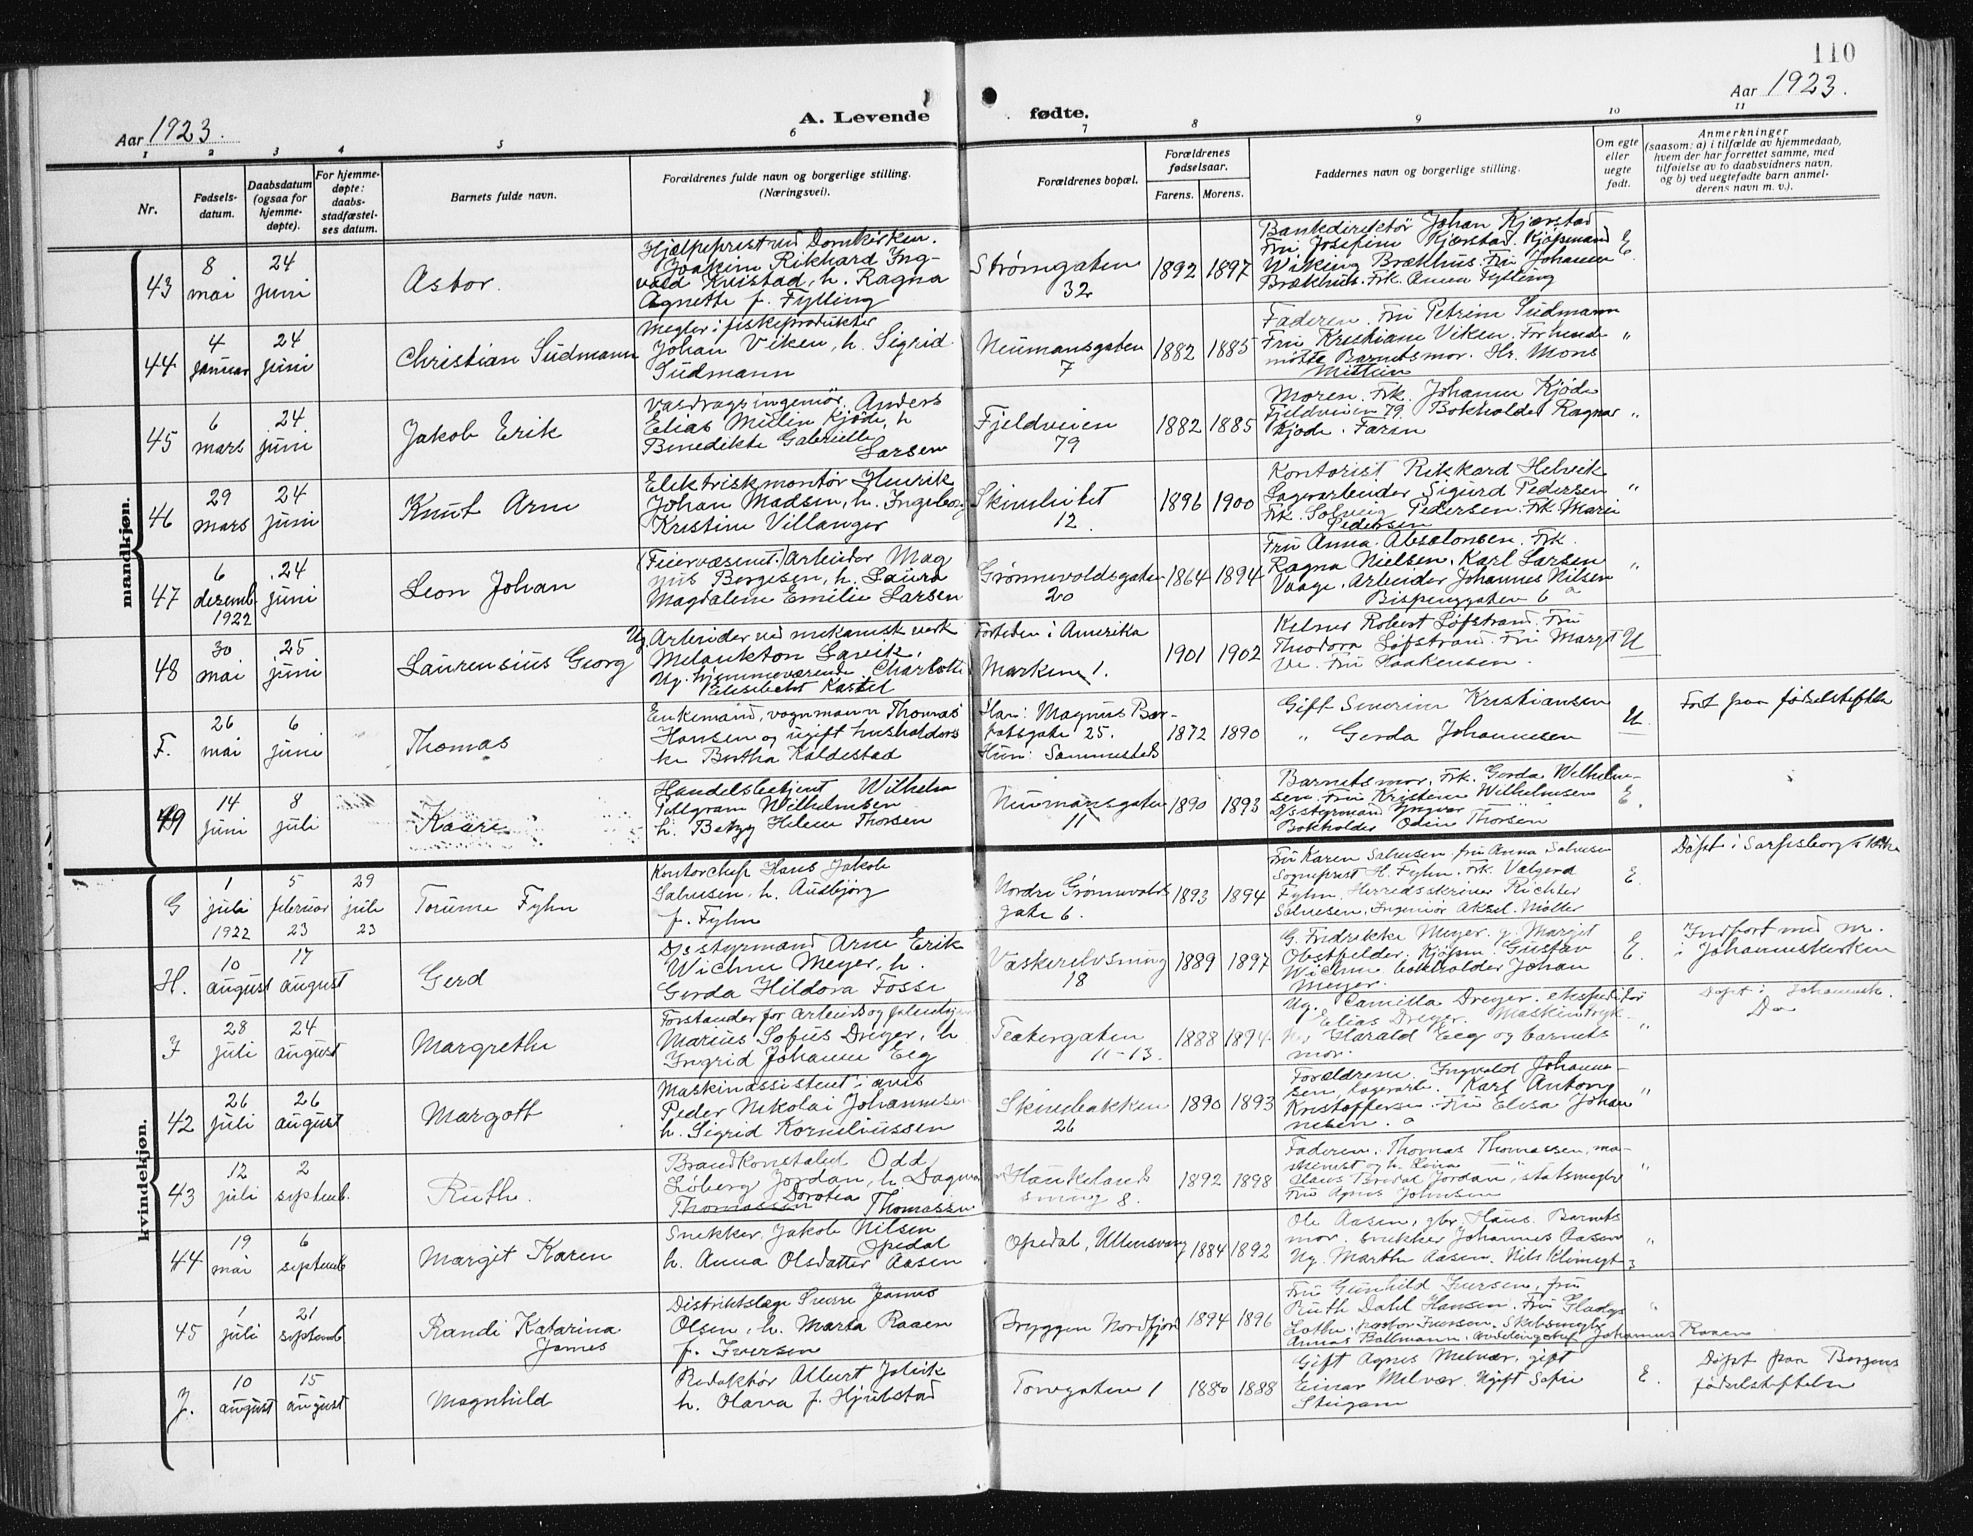 110
Aar 1923.
A. Levende fødte.
Aar 1923.
1 2 3 4 5 6 7 8 9 10 11
Nr.
Fødsels-
datum.
Daabsdatum
(ogsaa for
hjemme-
døpte).
For hjemme-
døpte:
daabs-
stadfæstel-
ses datum.
Barnets fulde navn.
Forældrenes fulde navn og borgerlige stilling.
(Næringsvei).
Forældrenes bopæl.
Forældrenes
fødselsaar.
Farens. Morens.
Faddernes navn og borgerlige stilling.
Om egte
eller
uegte
født.
Anmerkninger
(saasom: a) i tilfælde av hjemmedaab,
hvem der har forrettet samme, med
tilføielse av to daabsvidners navn,
og b) ved uegtefødte barn anmel-
derens navn m. v.).
mandkjøn.
43
8
mai
24
juni
Astor.
Hjælpeprest ved Domkirken.
Joakim Rikhard Ing-
vald Kvistad, h. Ragna
Agnette f. Fylling
Strømgaten
32
1892 1897
Bankdirektør Johan Kjærstad
Fru Josefine Kjærstad. Kjøpmand
Wiking Brækhus. Fru Johanne
Brækhus. Frk. Anna Fylling
E.
44
4
januar
24
juni
Christian Sudmann
Megler i fiskeprodukter
Johan Viken, h. Sigrid
Sudmann
Neumansgaten
7
1882 1885
Faderen. Fru Petrine Sudmann
Fru Kristiane Viken.
Barnets mor. Hr. Mons
"
45
6
mars
24
juni
Jakob Erik
Vasdragsingeniør. Anders
Elias Mittin Kjøde, h
Benedikte Gabrielle
Larsen
Fjeldveien
79
1882 1885
Moren. Frk. Johanne Kjøde
Fjeldveien 79. Bokholder Ragnar
Kjøde. Faren
"
46
29
mars
24
juni
Knut Arne
Elektriskmontør Henrik
Johan Madsen, h. Ingeborg
Kristine Villanger
12
1896 1900
Kontorist Rikkard Helvik
Lagerarbeider Sigurd Pedersen
Frk. Solveig Pedersen. Frk Marie
Pedersen
"
47
6
dezemb.
1922
24
juni
Leon Johan
(Feiervæsenet.) Arbeider Mag
nus Børgesen, h. Laura
Magdalene Emilie Larsen
Grønnevoldsgaten
20
1864 1894
Fru Anna Absalonsen. Frk.
Ragna Nielsen. Karl Larsen
Vaage. Arbeider Johannes Nilsen
Bispenggaten 6 a
"
48
30
mai
25
juni
Laurensius Georg
Ug. Arbeider ved mekanisk verk
Melankton Lavik,
Ug. hjemmeværende Charlotte
Elisabeth Kastel
Fortiden i Amerika
Marken 1.
1901 1902
Kelner Robert Løfstrand. Fru
Theodora Løfstrand. Fru Margit
Ve. Fru Haakensen.
U
F.
26
mai
6
juni
Thomas
Enkemand, vognmann Thomas
Hansen og ugift husholders
ke Bertha Kaldestad
Han: Magnus Bar-
fotsgate 25.
Hun: Sammesteds
1872 1890
Gift Severin Kristiansen
" Gerda Johannesen
U
Født paa fødselstiftelsen
49
14
juni
8
juli
Kaare
Handelsbetjent Wilhelm
Pillgram Wilhelmsen
h. Betzy Helene Thorsen
Neumansgaten
11
1890 1893
Barnets mor. Frk. Gerda Wilhelm-
sen. Fru Kristine Wilhelmsen
D/sstyrmand Yngvar
Bokholder Odin Thorsen
E.
kvindekjøn.
G
1
juli
1922
5
februar
23
29
juli
23
Torunne Fyhn
Kontorchef Hans Jakob
Salvesen, h. Audbjørg
f. Fyhn
Nordre Grønnevolds
gate 6.
1893 1894
Fru Karen Salvesen. fru Anna Salvesen
Sogneprest H. Fyhn. Frk. Valgerd
Fyhn. Herredsskriver Richter
Salvesen. Ingeniør Aksel Møller
E.
Døpt i Sarpsborg
H.
10
august
17
august
Gerd
D/sstyrmand Arne Erik
Wichne Meyer, h.
Gerda Hildora Fosse
Vaskerelvsmug
18
1889 1897
G. Fredrikke Meyer. g. Margit
Obstfelder. Kjøpm. Gustav
Wichne bokholder Johan
Meyer.
E.
Indført med nr.
i Johanneskirken
I
28
juli
24
august
Margrethe
Forstander for
Marius Sofus Dreyer, h
Ingrid Johanne Eeg
Teatergaten
11-13.
1888 1894
Ug. Camilla Dreyer. ekspeditør
Elias Dreyer. Maskintryk.
Harald Eeg og barnets
mor.
"
Døpt i Johannesk.
Do
42
26
juli
26
august
Margott
Maskinassistent i avis
Peder Nikolai Johannesen
h. Sigrid Korneliussen
Skivebakken
26
1890 1893
Forældrene. Ingvald Johanne-
sen, lagerarb. Karl Anton
Kristoffersen. Fru Elisa Johan
nesen.
"
43
12
juli
2
septemb.
Ruth.
Brandkonstabel Odd
Løberg Jordan, h Dagny
Dorotea
Thomassen Thomassen
Haukelands
smug 8.
1892 1898
Faderen. Thomas Thomassen, ma-
skinist og h. Lina
Hans Bredal Jordan,
Fru Agnes Johnsen
"
44
19
mai
6
septemb
Margit Karen
Snekker Jakob Nilsen
Opedal
h. Anna Olsdatter Aasen
Opedal, Ullensvang
1884 1892
Ole Aasen, gbr. Hans. Barnets
mor. snekker Johannes Aasen
Ug. Marthe Aasen. Nils
"
45
1
juli
21
septemb
Randi Katarina
James
Distriktslæge Sverre James
Olsen, h. Marta Raaen
f. Iversen
Bryggen Nordfjord
1894 1896
Fru Gunhild Iversen, fru
Ruth Dahl Hansen. Fru Gladys
Lothe. pastor Iversen. Skibsmegler
Annas Ballmann. Avdelingschef Johannes Raaen
"
J.
10
august
15
august
Magnhild
Redaktør Albert Jolvik
h. Olava f. Hjulstad
Torvgaten 1
1880 1888
Gift Agnes Melvær, gift
Einar Melvær. Ugift Sofie
E.
Døpt paa Bergens
fødselstiftelse